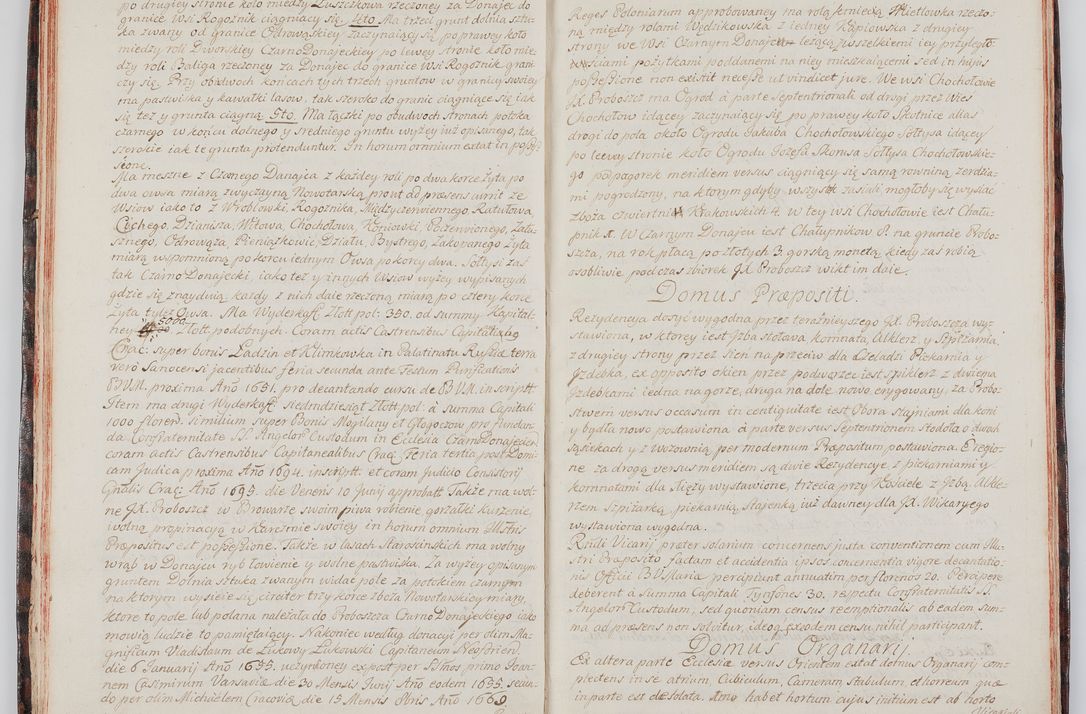 po drugiey stronie koło miedzy Luszczkowa rzeczoney za Donajec do
granice Wsi Rogoźnik ciągnący się. 4to. Ma trzeci grunt dolnia sztu-
ka zwany od granice Odrowąskiey zaczynaiący się po prawey koło
miedzy roli Dworskiey CzarnoDonajeckiey po lewey stronie koło mie-
dzy roli Baliga rzeczoney za Donajec do granice Wsi Rogoźnik grani-
czy się. Przy obudwoch końcach tych trzech gruntow w granicy swoiey
ma pastwiska y kawałki lasow, tak szeroko do granic ciągniące się iak
się też y grunta ciągną. 5to. Ma łączki po obudwoch stronach potoka
czarnego w końcu dolnego y sredniego gruntu wyżey iuż opisanego, tak
szerokie iak te grunta protenduntur. In horum omnium extat in posse-
ssione.
Ma meszne z Czarnego Donajca z każdey roli po dwa korce żyta po
dwa owsa miarą zwyczayną Nowotarską prout ad præsens avrit ze
Wsiow iako to z Wroblowki, Rogoźnika, Międzyczerwiennego Ratułowa,
Cichego, Dzianisza, Witowa, Chochołowa, Koniowki, Podczerwionego, Zału-
sznego, Odrowąża, Pieniąskowic, Działu, Bystrego, Zakopanego żyta
miarą wspomnioną po korcu iednym Owsa po korcy dwa. Sołtysi zaś
tak CzarnoDonajecki, iako też y innych Wsiow wyżey wypisanych
gdzie się znayduią każdy z nich daie rzeczoną miarą po cztery korce
żyta tyleż Owsa. Ma Wyderkaff Złott: pol: 350. od summy Kapital-
ney 5000 Złott. podobnych. Coram actis Castrensibus Capitalibg
Crac: super bonis Ladzin et Klimkowka in Palatinatu Russiæ terra
vero Sanocensi jacentibus feria secunda ante Festum Purificationis
BVM. proxima Año 1651. pro decantando cursu de BVM. inscriptt.
Item ma drugi Wyderkaff siedmdziesiąt Złott: pol: à Summa Capitali
1000 floren. similium super Bonis Mogilany et Głogoczow pro fundan-
da Confraternitate SS. Angelor Custodum in Ecclesia CzarnDonajecien.
coram actis Castrensibus Capitanealibus Crac. Feria tertia post Domi-
cam Judica proxima Año 1694. inscriptt. et coram Judicio Consistorij
Gñalis Crac: Año 1695. die Veneris 10 Junij approbatt. Także ma wol-
ne JX. Proboszcz w Browarze swoim piwa robienie, gorzałki kurzenie,
wolną propinacyą w Karczmie swoiey in horum omnium Illstris
Præpositus est possessione. Także w lasach Starościnskich ma wolny
wrąb w Donajcu ryb łowienie y wolne pastwiska. Za wyżey opisanym
gruntem Dolnia sztuka zwanym widać pole za potokiem czarnym
na ktorym wysieie się circiter trzy korce zboża Nowotarskiey miary,
ktore to pole lub polana należała do Proboszcza CzarnoDonajeckiego iako
mowią ludzie to pamiętaiący. Nakoniec według donacyi per olim Ma-
gnificum Vladislaum de Lukowy Lukowski Capitaneum Neoforien.
die 6 Januarij Año 1635. uczynioney expost per Sersmos primo Joan-
nem Casimirum Varsaviæ die 30 Mensis Junij Año eodem 1635. secun-
do per olim Michaelem Cracoviæ die 15 Mensis 8bris Año 1669
Reges Poloniarum approbowaney ma rolą kmiecą Mietłowka rzeczo-
ną między rolami Wędzikowska z iedney Kapiowska z drugiey
strony we Wsi Czarnym Donajcu leżącą zwszelkiemi iey przyległo-
sciami pożytkami poddanemi na niey mieszkaiącemi sed in hujus
possessione non existit necesse ut vindicet jure. We wsi Chochołowie
JX. Proboszcz ma Ogrod à parte Septentrionali od drogi przez Wies
Chochołow idącey zaczynaiący się po prawey koło Skotnice alias
drogi do pola około Ogrodu Jakuba Chochołowskiego Sołtysa idącey
po lewey stronie koło Ogrodu Jozefa Skorusa Sołtysa Chochołowskie-
go pod pagorek meridiem versus ciągniący się samą rowniną żerdzia-
mi pogrodzony, na ktorym gdyby wszystek zasiali mogłoby się wysiać
zboża czwiertnia Krakowskich 4. w tey wsi Chochołowie iest Chału-
pnik 1. W Czarnym Donajcu iest Chałupnikow 8. na gruncie Probo-
szcza, na rok płacą po złotych 3. gorską monetą kiedy zas robią
osobliwie podczas zbiorek JX. Proboszcz wikt im daie.
Domus Præpositi.
Rezydencyia dosyć wygodna przez teraźnieyszego JX. Proboszcza wy-
stawiona, w ktorey iest Jzba stołowa, komnata, Alkierz, y Spiżarnia,
z drugiey strony przez Sień na przeciw dla Czeladzi Piekarnia y
Jzdebka, ex opposito okien przez podworzec iest spiklerz z dwiema
Jzdebkami iedna na gorze, druga na dole nowo erygowany, za Probo-
stwem versus occasum in contiguitate iest Obora stainiami dla koni
y bydła nowo postawiona à parte versus Septentrionem stodoła o dwoch
sąsiekach y z wozownią per modernum Præpositum postawiona. E regio-
ne za drogą versus meridiem są dwie Rezydencye, z piekarniami y
komnatami dla Xięży wystawione, trzecia przy Kościele z Jzbą, Alkie-
rzem szpiżarką, piekarnią, stajenką iuż dawney dla JX. Wikaryego
wystawiona wygodna.
Rndi Vicarij præter solarium concernens juxta conventionem cum Illu-
stri Præposito factam et accidentia ipsos concernentia vigore decantatio-
nis Officii BV Mariæ percipiunt annuatim per florenos 20. Percipere
deberent à Summa Capitali Tynfones 30. respectu Confraternitatis SS.
Angelor Custodum, sed quoniam census reemptionalis ab eadem Sum-
ma ad præsens non solvitur, ideoq. exeodem censu nihil participant.
Domus Organarij.
Ex altera parte Ecclesiæ versus Orientem extat domus Organarij com-
plectens in se atrium Cubiculum, Cameram stabulum, et horreum quæ
in parte est desolata. Anno habet hortum cujus initium est ab horto